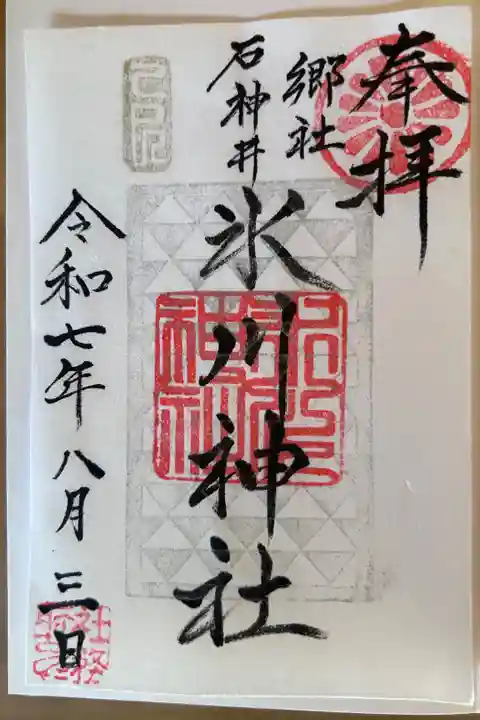 奉拝
郷社
石神井
氷川神社
令和七年八月三日
社務